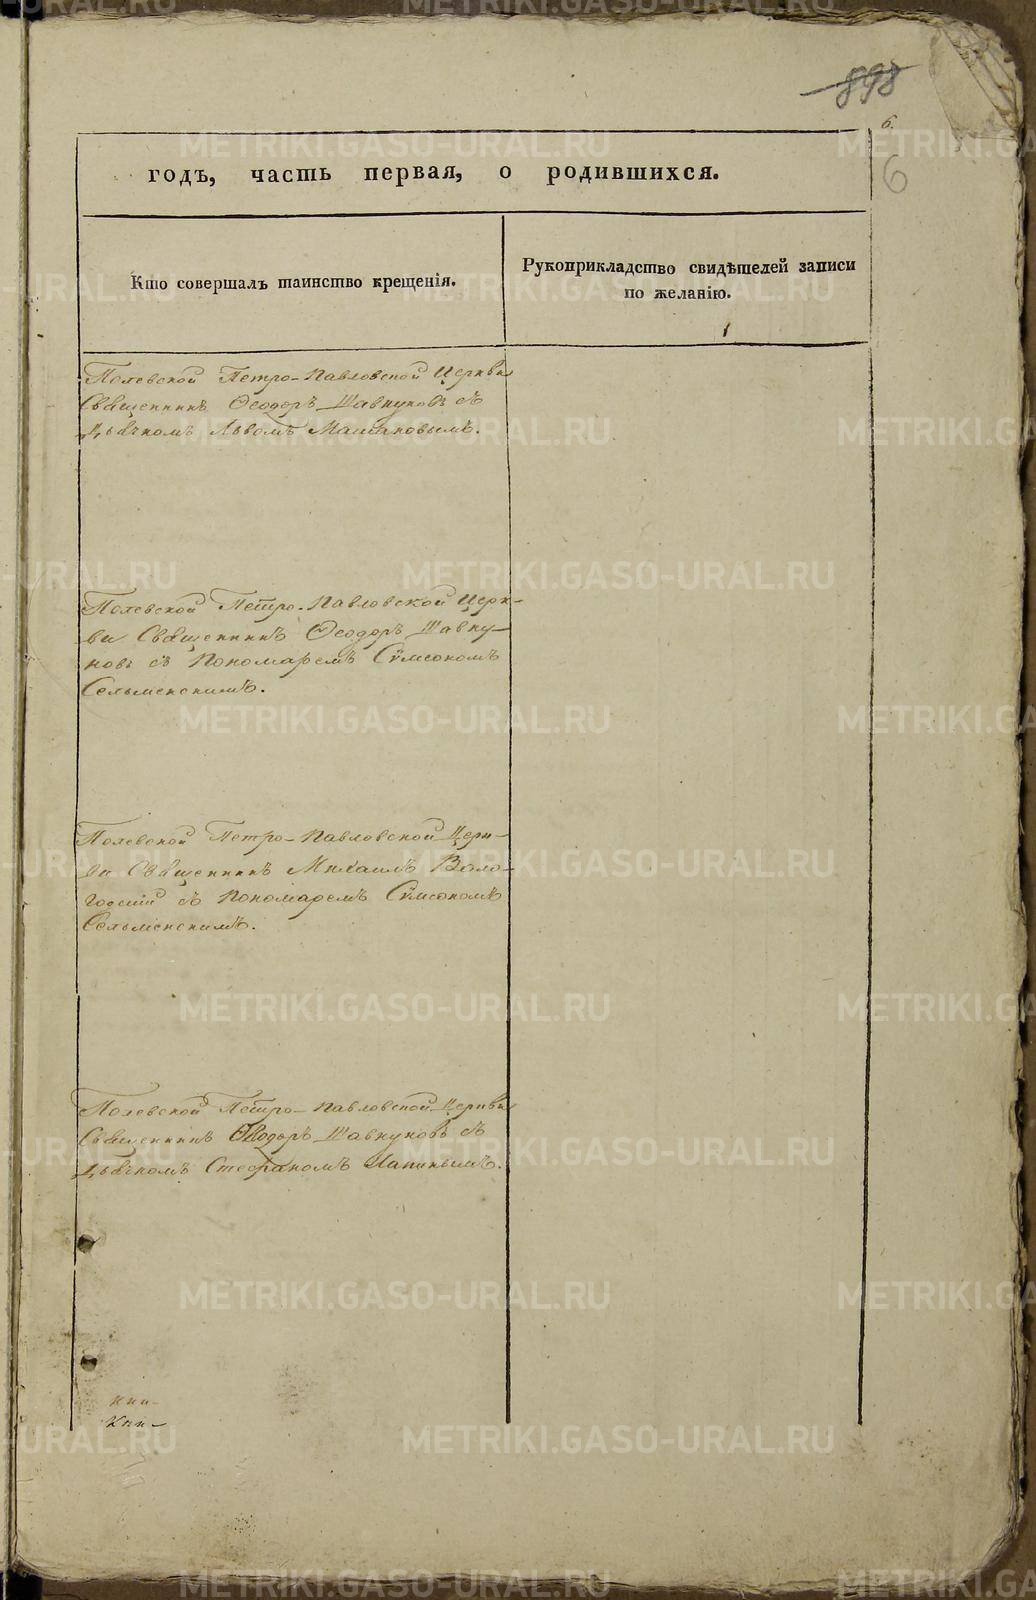 898
6.
6
годъ, часть первая, о родившихся.
Кто совершалъ таинство крещенія.
Рукоприкладство свидѣтелей записи
по желанію.
Полевской Петро-Павловской Церкви
Священникъ Ѳеодоръ Шавкуновъ съ
Дьячкомъ Львомъ
Полевской Петро-Павловской Церк-
ви Священникъ Ѳеодоръ Шавку-
новъ съ Пономаремъ Сѵмеономъ
Сельменскимъ.
Полевской Петро-Павловской Церк-
ви Священникъ Михаилъ Воло-
годскій съ Пономаремъ Сѵмеономъ
Сельменскимъ.
Полевской Петро-Павловской Церкви
Священникъ Ѳеодоръ Шавкуновъ съ
Дьячкомъ Стефаномъ Лапинымъ.
Кни-
Кни-
METRIKI.GASO-URAL.RU